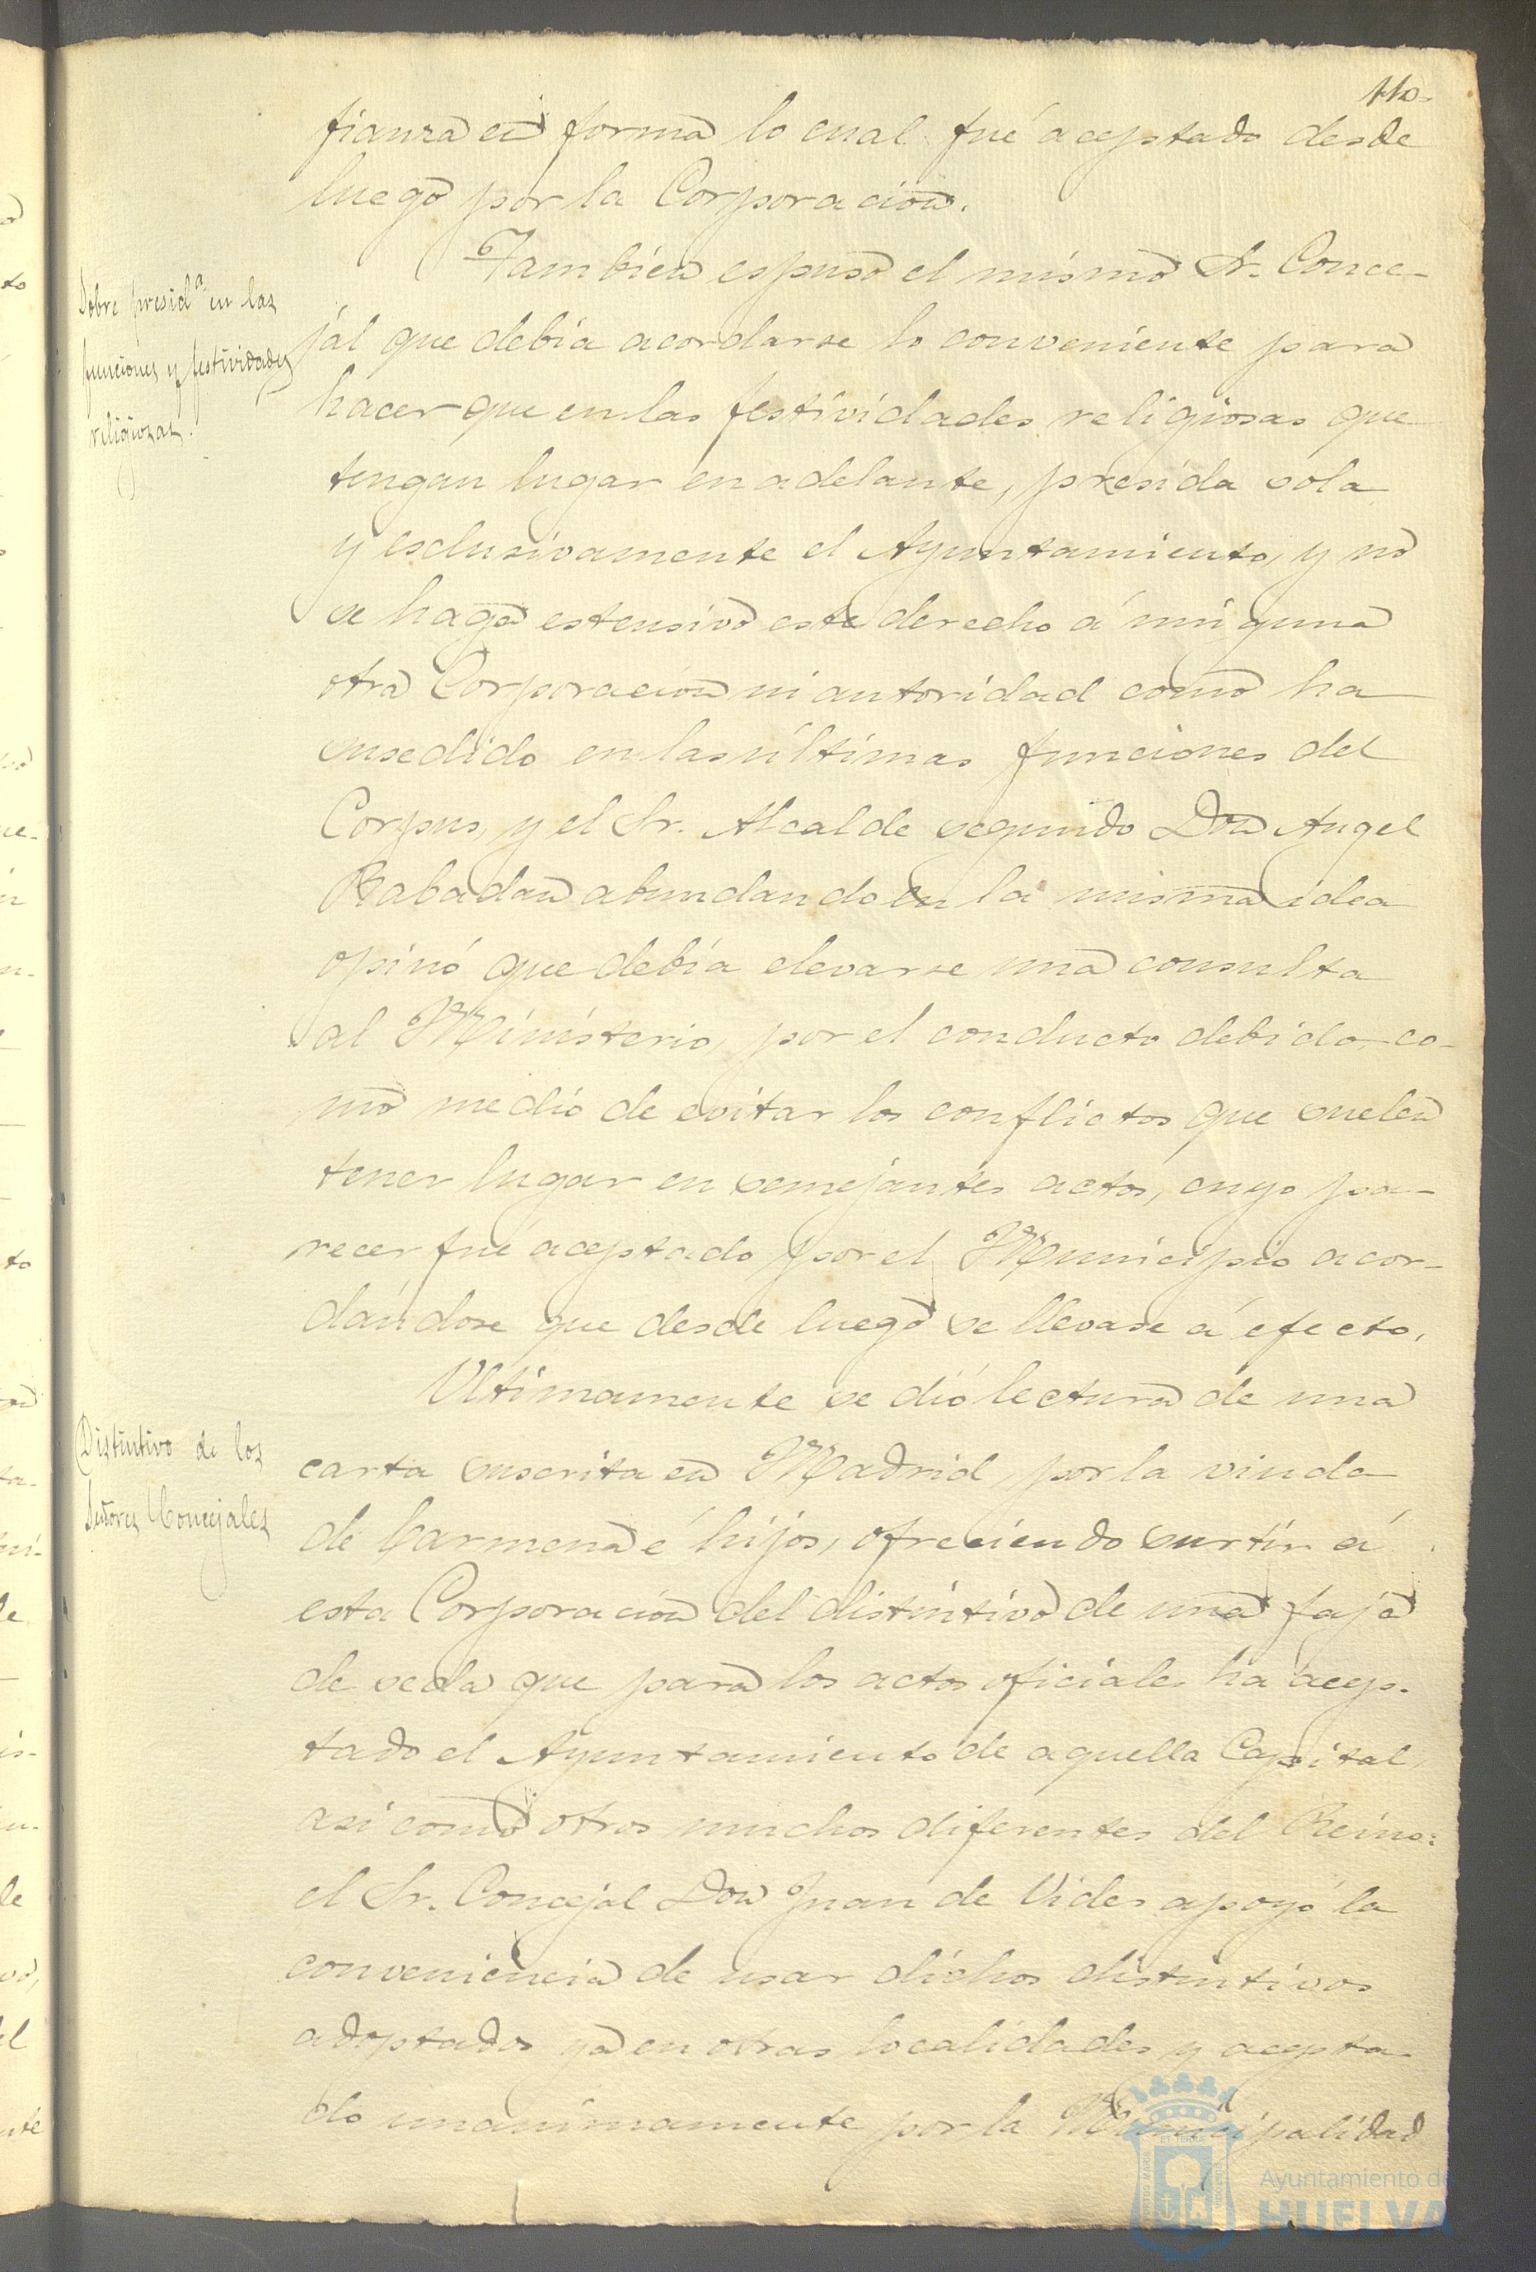 110.
fianza en forma lo cual fué aceptado desde
luego por la Corporacion.
Sobre presid.ª en las
funciones y festividades
religiosas.
Tambien espuso el mismo Sr. Conce-
jal que debia acordarse lo conveniente para
hacer que en las festividades religiosas que
tengan lugar en adelante, presida sola
y esclusivamente el Ayuntamiento, y no
se haga estensivo este derecho á ninguna
otra Corporacion ni autoridad como ha
susedido en las últimas funciones del
Corpus, y el Sr. Alcalde segundo Don Angel
Rabadan abundando en la misma idea
opinó que debia elevarse una consulta
al Ministerio, por el conducto debido, co-
mo medio de evitar los conflictos que suelen
tener lugar en semejantes actos, cuyo pa-
recer fué aceptado por el Municipio acor-
dándose que desde luego se llevase á efecto.
Distintivo de los
Señores Concejales
Ultimamente se dió lectura de una
carta suscrita en Madrid, por la viuda
de Carmena é hijos, ofreciendo surtir á
esta Corporacion del distintivo de una faja
de seda que para los actos oficiales ha acep-
tado el Ayuntamiento de aquella Capital,
asi como otros muchos diferentes del Reino:
el Sr. Concejal Don Juan de Vides apoyó la
conveniencia de usar dichos distintivos
adoptados ya en otras localidades y acepta-
do unanimamente por la Municipalidad
Ayuntamiento de
HUELVA